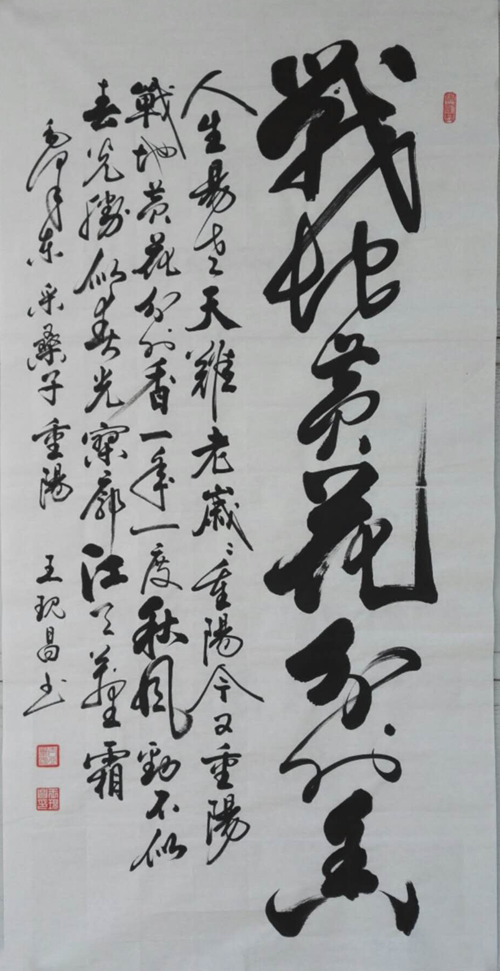 戰地黃花分外香
人生易老天難老歲々重陽今又重陽
戰地黃花分外香一年一度秋風勁不似
春光勝似春光寥廓江天萬里霜
毛澤东采桑子重陽 王现昌书